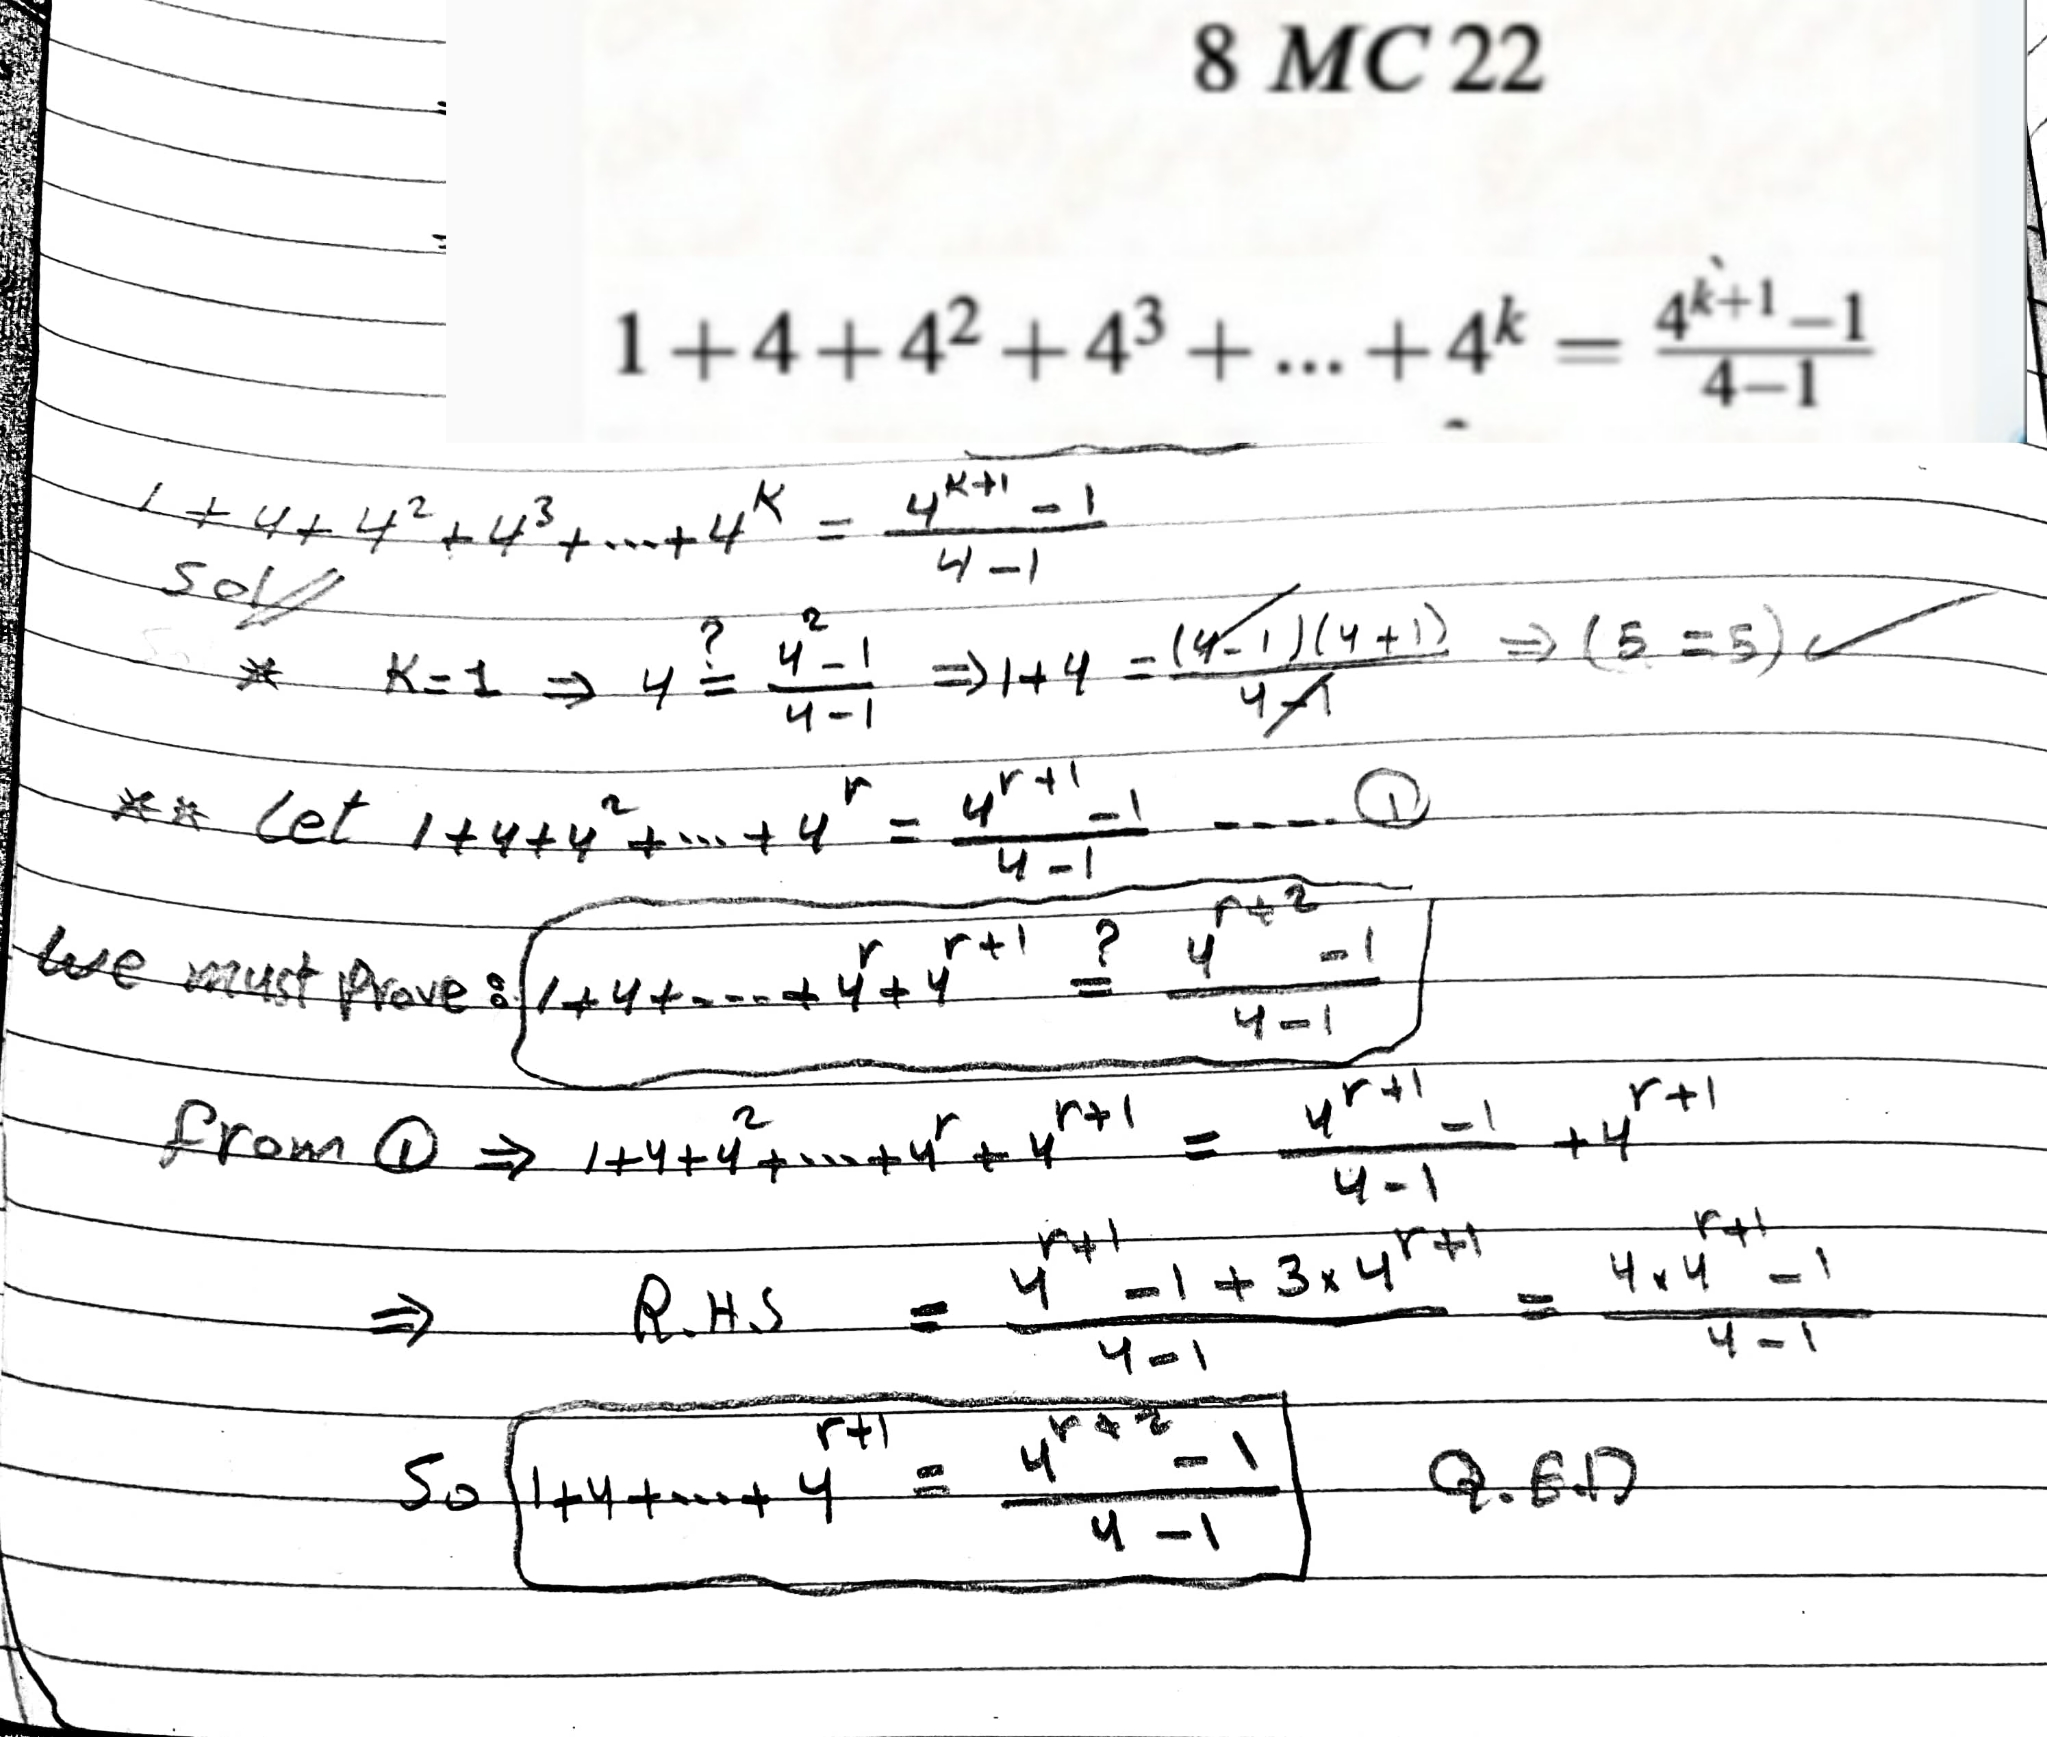 8 MC 22
1+4+4²+4³+...+4ᵏ = (4ᵏ⁺¹−1)/(4−1)
1+4+4²+4³+...+4ᴷ = (4ᴷ⁺¹−1)/(4−1)
Sol//
* K=1 ⇒ 4 ≟ (4²−1)/(4−1) ⇒ 1+4 = (4−1)(4+1)/(4−1) ⇒ (5=5) ✓
** Let 1+4+4²+...+4ʳ = (4ʳ⁺¹−1)/(4−1) ----- ①
We must Prove: 1+4+----+4ʳ+4ʳ⁺¹ ≟ (4ʳ⁺²−1)/(4−1)
from ① ⇒ 1+4+4²+...+4ʳ+4ʳ⁺¹ = (4ʳ⁺¹−1)/(4−1) +4ʳ⁺¹
⇒ R.H.S = (4ʳ⁺¹−1+3×4ʳ⁺¹)/(4−1) = (4×4ʳ⁺¹−1)/(4−1)
So 1+4+...+4ʳ⁺¹ = (4ʳ⁺²−1)/(4−1) Q.E.D